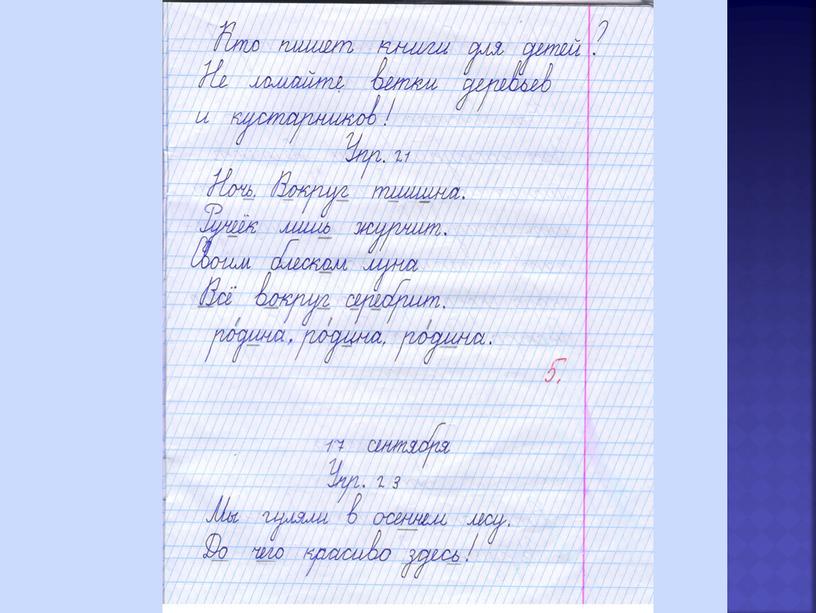 Кто пишет книги для детей?
Не ломайте ветки деревьев
и кустарников!
Упр. 21
Ночь. Вокруг тишина.
Ручеёк лишь журчит.
Своим блеском луна
Всё вокруг серебрит.
ро́дина, ро́дина, ро́дина.
5.
17 сентября
Упр. 23
Мы гуляли в осеннем лесу.
До чего красиво здесь!